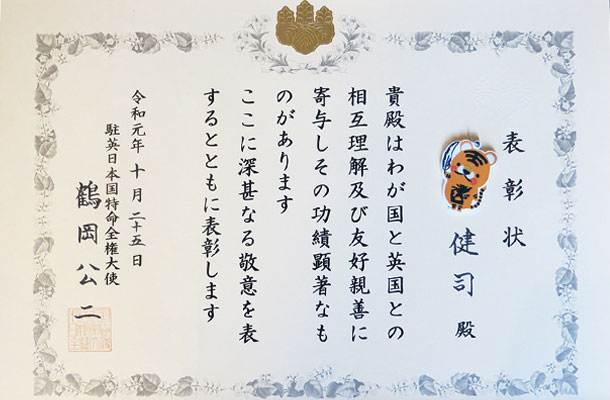 表彰状
健司 殿
貴殿はわが国と英国との
相互理解及び友好親善に
寄与しその功績顕著なも
のがあります
ここに深甚なる敬意を表
するとともに表彰します
令和元年 十月 二十五日
駐英日本国特命全権大使
鶴岡公二